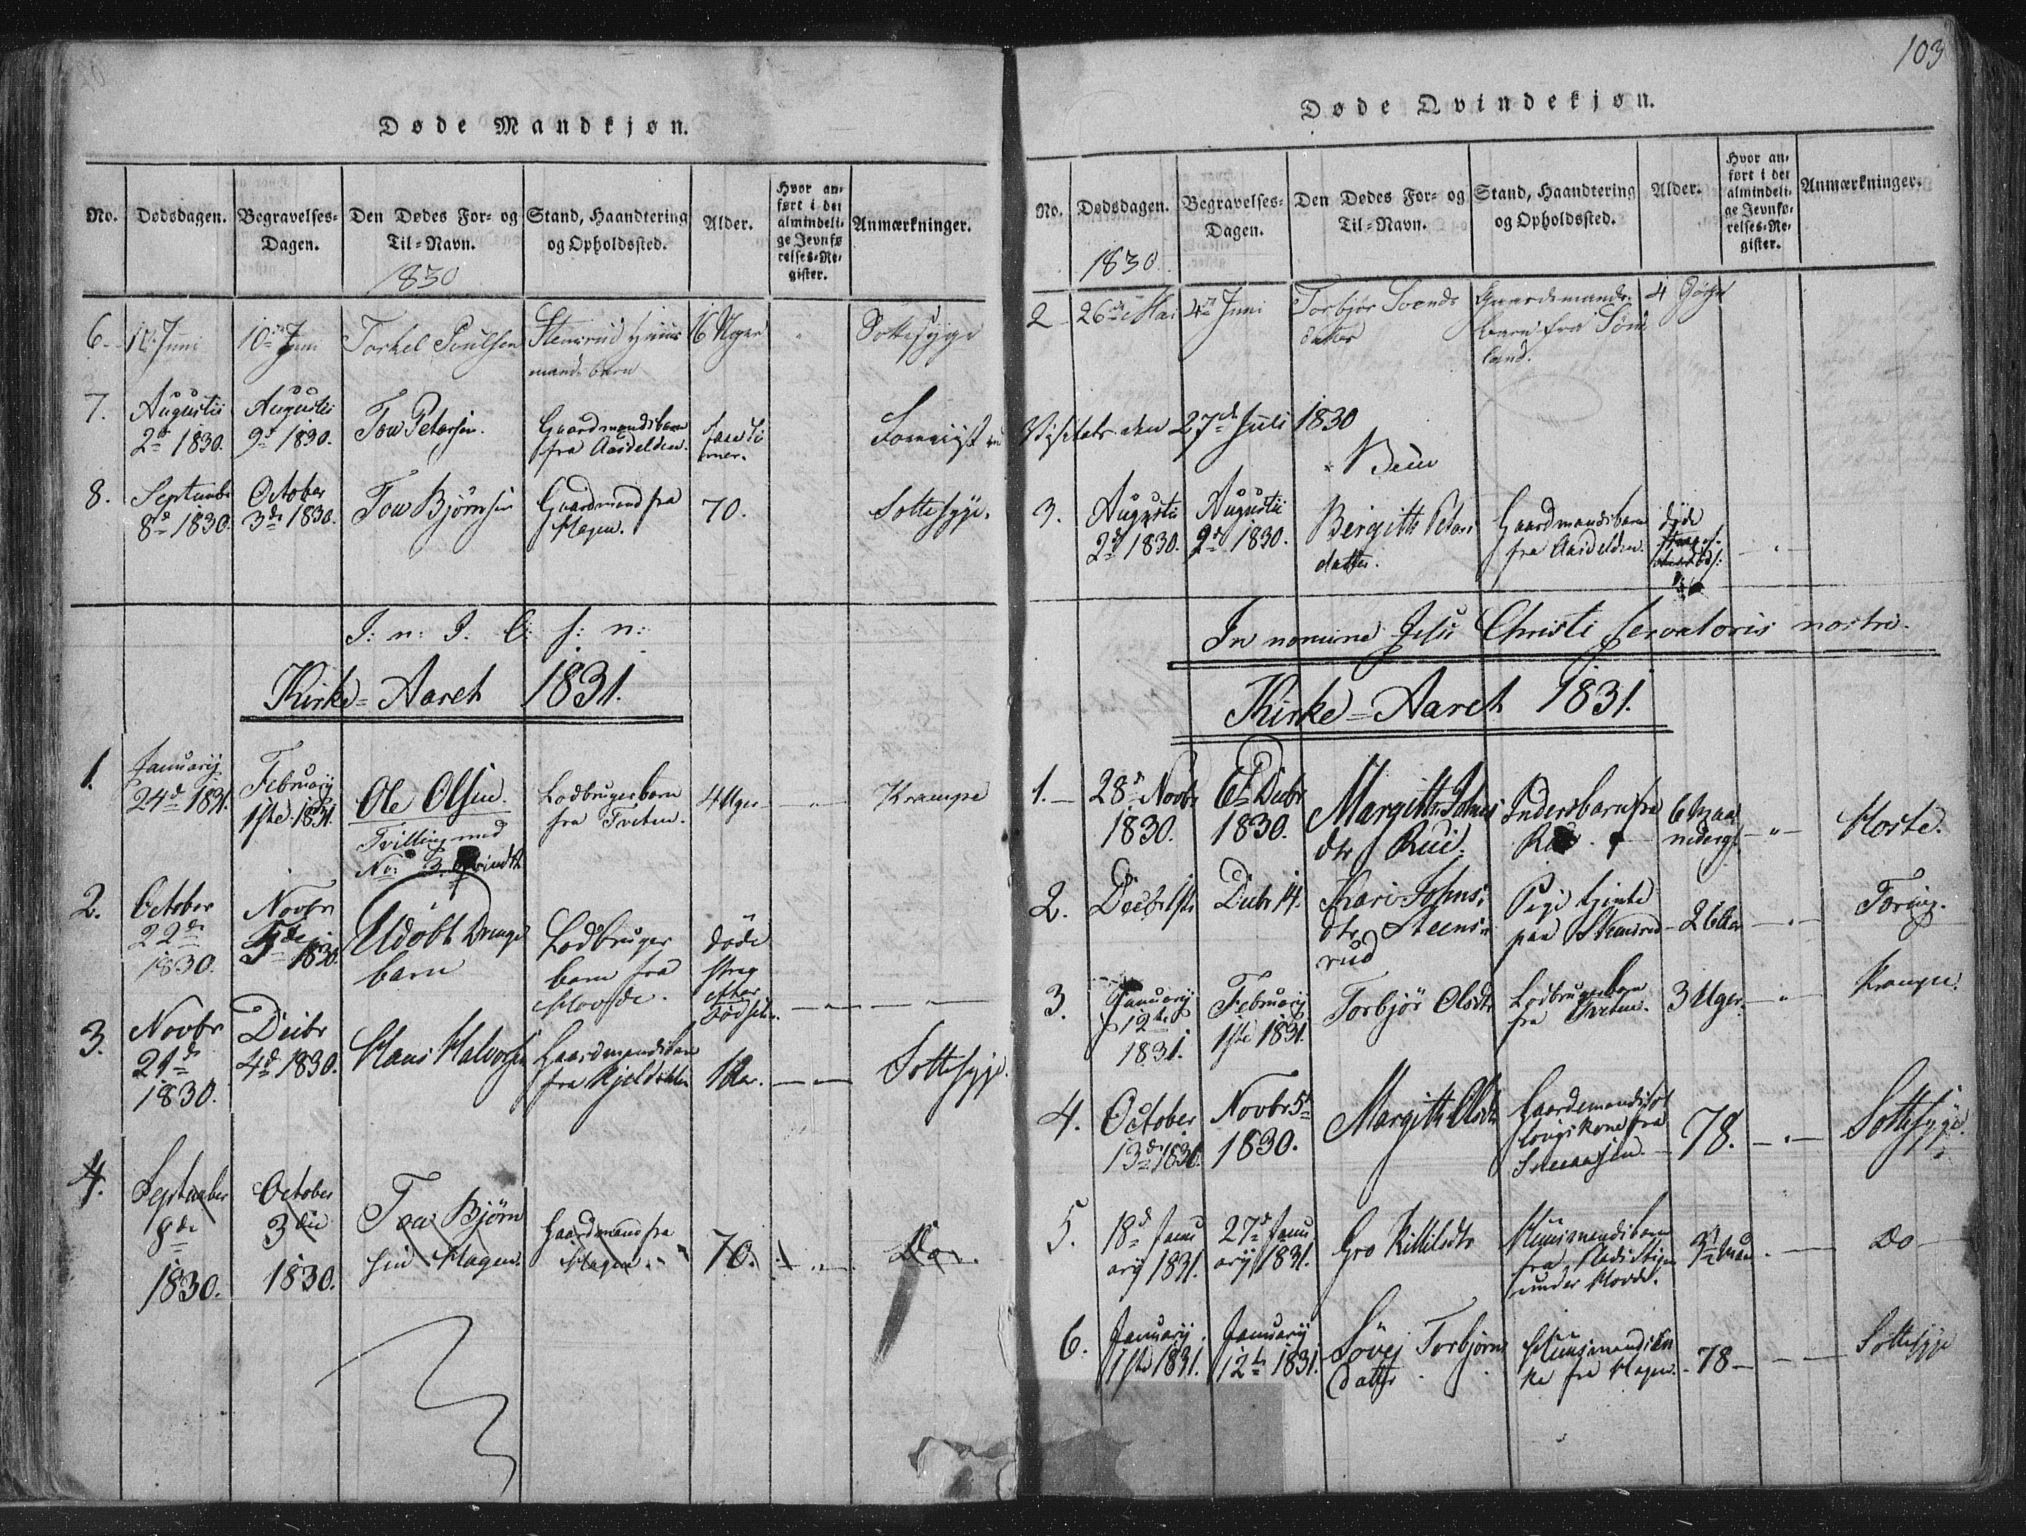 Døde Mandkjøn.
No.
Dødsdagen.
Begravelses-
Dagen.
Den Dødes For- og
Til-Navn.
1830
Stand, Haandtering
og Opholdssted.
Alder.
Hvor an-
ført i det
almindeli-
ge Jevnfø
relses-Re-
gister.
Anmærkninger.
6.
Juni
10de Juni
Torkel
Stensrud
mands barn
16 Uger
Sottesyge
7.
Augusti
2de 1830.
Augusti
9de 1830.
Tow Petersen
Gaardmandsbarn
fra Aasdelden.
8.
Septembr
8de 1830.
October
3de 1830.
Tow Bjørnsen
Gaardmand fra
Hagen.
70.
Sottesyge.
I: n: I: C: s: n:
Kirke-Aaret 1831.
1.
January
24de 1831.
February
1ste 1831.
Ole Olsen.
Tvilling med
No. 3. Qvindk.
Lodbrugerbarn
fra Tveten.
4 Uger
Krampe
2.
October
22de
1830.
Novbr
1830.
Udöbt Drenge
barn
Lodbruger
barn fra
Hovde.
døde
strax
efter
Fødselen
3.
Novbr
21de
1830.
Decbr
4de 1830.
Hans Halvorsen
Gaardmandsbarn
fra
1 Aar.
Sottesyge.
4.
September
8de
1830.
October
3die
1830.
Tow Bjørn
sen Hagen.
Gaardmand fra
Hagen.
70.
Do.
103
Døde Qvindekjøn.
No.
Dødsdagen.
1830.
Begravelses-
Dagen.
Den Dødes For- og
Til-Navn.
Stand, Haandtering
og Opholdssted.
Alder.
Hvor an-
ført i det
almindeli-
ge Jevnfø-
relses-Re-
gister.
Anmærkninger.
2
26de Mai
4de Juni
Torbjør Svends
datter
Gaardmands-
barn fra
land.
4
Visitats den 27de Juli 1830
3.
Augusti
2de 1830.
Augusti
9de 1830.
Birgitte Peters
datter.
Gaardmandsbarn
fra Aasdelden.
døde
In nomine Jesu Christi servatoris nostri.
Kirke-Aaret 1831.
1.
28de Novbr
1830.
6te Decbr
1830.
Margitte Johns
dtr Rud.
Indersbarn fra
Rud.
6 Maa
neder
Hoste.
2.
Decbr 1ste
Decbr 14.
Kari Johns
dtr Steens
rud
Pige
paa Stensrud
26 Aar
Tæring.
3.
January
12te
1831.
February
1ste 1831.
Torbjør Olsdtr
Lodbrugerbarn
fra Tveten.
3 Uger.
Krampe.
4.
October
13de 1830.
Novbr 5te
1830.
Margitte Olsdtr
Gaardemands
kone fra
78.
Sottesyge.
5.
18de Janu
ary 1831.
27de Janu
ary 1831.
Gro Kittilsdtr
Huusmandsbarn
fra
under Hovde.
Do
6.
January
1ste 1831.
January
12te 1831.
Sövej Torbjørns
datter
Huusmandsen
ke fra Hagen.
78
Sottesyge